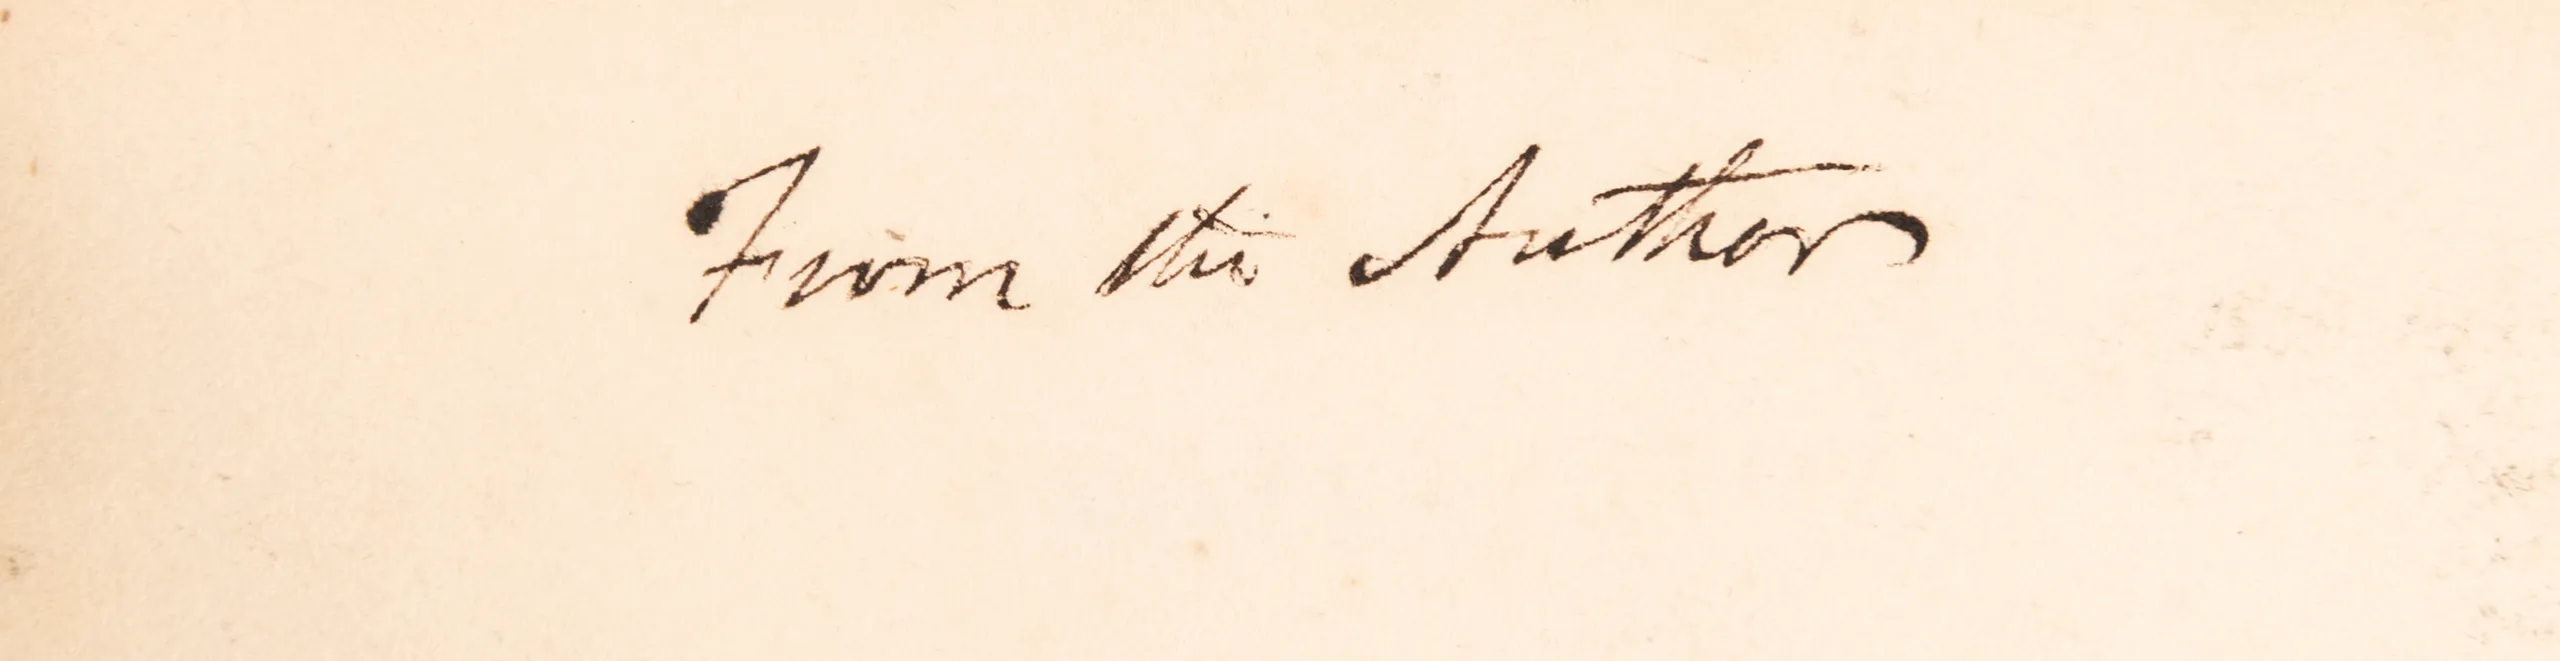 From the Author